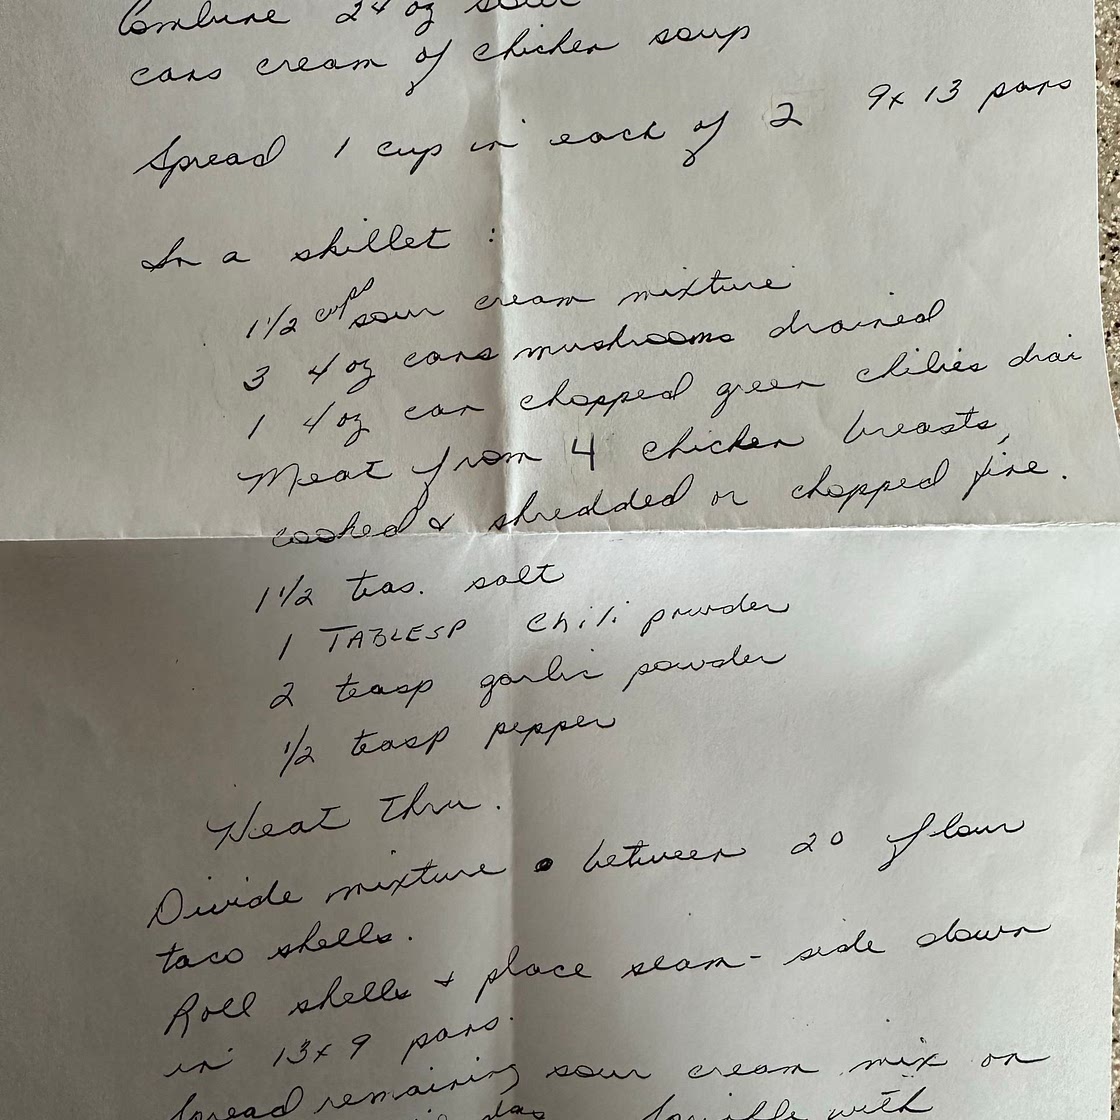 Combine 24 oz sour
cans cream of chicken soup
Spread 1 cup in each of 2 9x13 pans
In a skillet :
1 1/2 cups sour cream mixture
3 4 oz cans mushrooms drained
1 4 oz can chopped green chilies drai
Meat from 4 chicken breasts,
cooked & shredded or chopped fine.
1 1/2 teas. salt
1 TABLESP chili powder
2 teasp garlic powder
1/2 teasp pepper
Heat thru.
Divide mixture between 20 flour
taco shells.
Roll shells & place seam-side down
in 13x9 pans.
Spread remaining sour cream mix on
Sprinkle with